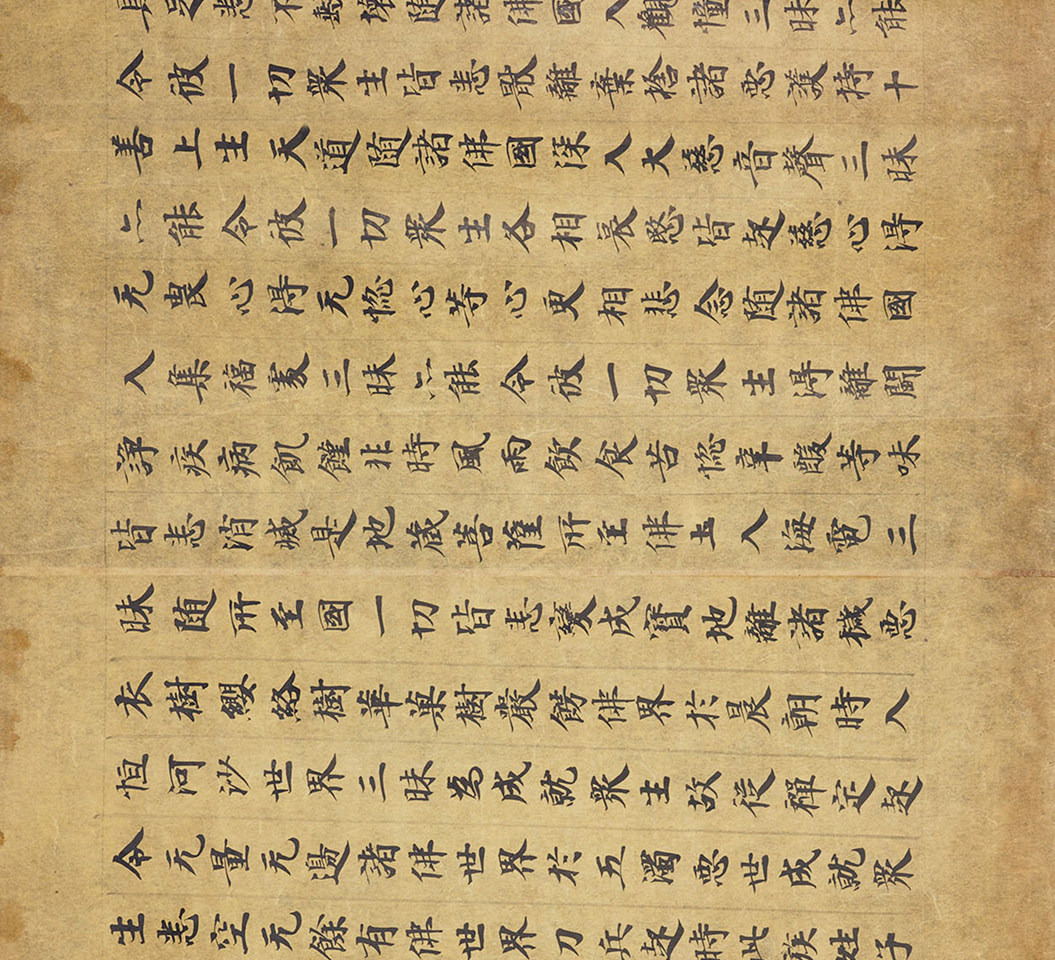 具足悉不壞随諸佛國入觀幢三昧亦能
令彼一切衆生皆悉散離棄捨諸惡護持十
善上生天道随諸佛國深入大慈音聲三昧
亦能令彼一切衆生各相哀愍皆起慈心得
无畏心得无惱心等心更相悲念随諸佛國
入集福處三昧亦能令彼一切衆生得離鬪
諍疾病飢饉非時風雨飲食苦惱辛酸等味
皆悉消滅是地藏菩薩所至佛土入海電三
昧随所至國一切皆悉變成寶地離諸穢惡
衣樹纓絡樹華菓樹嚴餝佛界於晨朝時入
恒河沙世界三昧為成就衆生故從禪定起
令无量无邊諸佛世界於五濁惡世成就衆
生悉空无餘有佛世界刀兵起時此族姓子